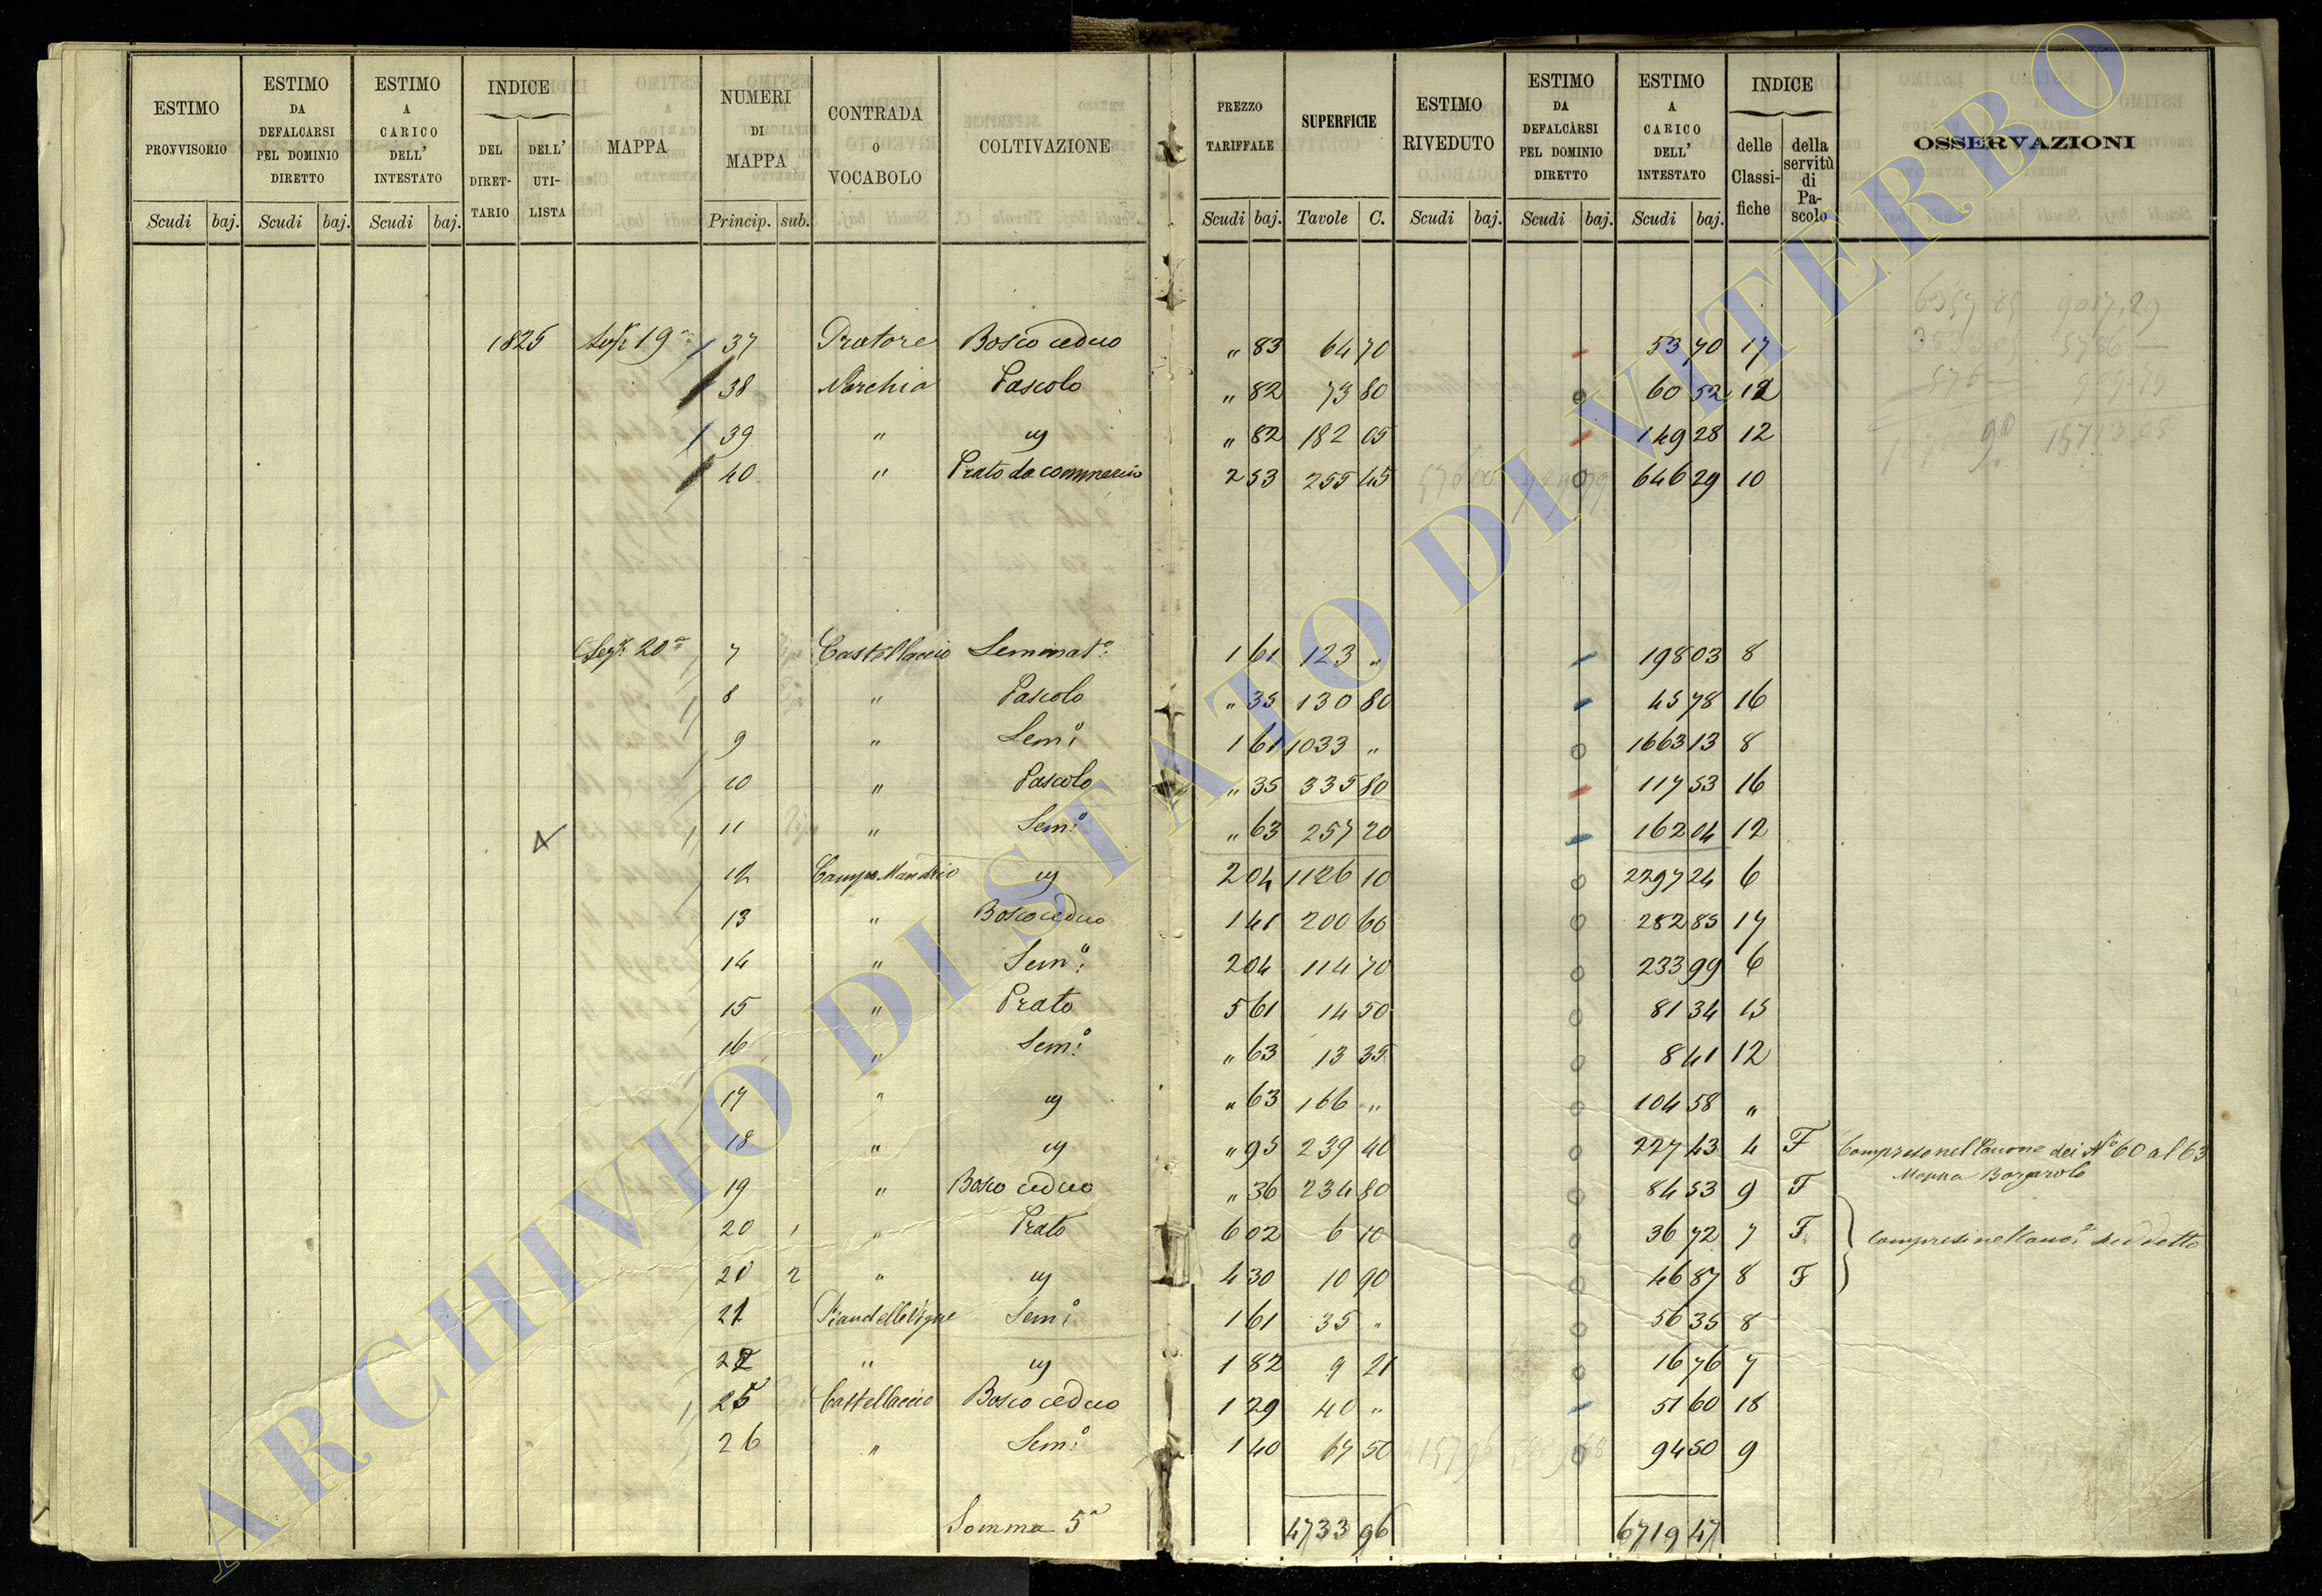 ESTIMO PROVVISORIO | ESTIMO DA DEFALCARSI PEL DOMINIO DIRETTO | ESTIMO A CARICO DELL' INTESTATO | INDICE DEL DIRETTARIO | DELL' UTILISTA | MAPPA | NUMERI DI MAPPA | CONTRADA O VOCABOLO | COLTIVAZIONE | PREZZO TARIFFALE | SUPERFICIE | ESTIMO RIVEDUTO | ESTIMO DA DEFALCARSI PEL DOMINIO DIRETTO | ESTIMO A CARICO DELL' INTESTATO | INDICE delle Classifiche | della servitù di Pascolo | OSSERVAZIONI
Scudi baj. Scudi baj. Scudi baj. Princip. sub. Scudi baj. Tavole C. Scudi baj. Scudi baj. Scudi baj.
1825 Sez.e 19a 37 Pratore Bosco ceduo " 83 64 70 53 70 17
38 Norchia Pascolo " 82 73 80 60 52 12
39 " " 82 182 05 149 28 12
40 " Prato da commercio 2 53 255 45 646 29 10
Sez.e 20a 7 Castellaccio Seminato 1 61 123 " 198 03 8
8 " Pascolo " 35 130 80 45 78 16
9 " Sem.o 1 61 1033 " 1663 13 8
10 " Pascolo " 35 335 80 117 53 16
11 " Sem.o " 63 257 20 162 04 12
12 Campo Mandrio 2 04 1126 10 2297 24 6
13 " Bosco ceduo 1 41 200 60 282 85 17
14 " Sem.o 2 04 114 70 233 99 6
15 " Prato 5 61 14 50 81 34 15
16 " Sem.o " 63 13 35 8 41 12
17 " " 63 166 " 104 58 "
18 " " 95 239 40 227 43 4 F Compreso nel Canone dei No 60 al 63
Mappa Borgarolo
19 " Bosco ceduo " 36 234 80 84 53 9 F
20 1 " Prato 6 02 6 10 36 72 7 F Compresi nel Cano.e suddetto
20 2 " 4 30 10 90 46 87 8 F
21 Pian delle Vigne Sem.o 1 61 35 " 56 35 8
22 " 1 82 9 21 16 76 7
25 Castellaccio Bosco ceduo 1 29 40 " 51 60 18
26 " Sem.o 1 40 67 50 94 50 9
Somma 5a 4733 96 6719 47
ARCHIVIO DI STATO DI VITERBO